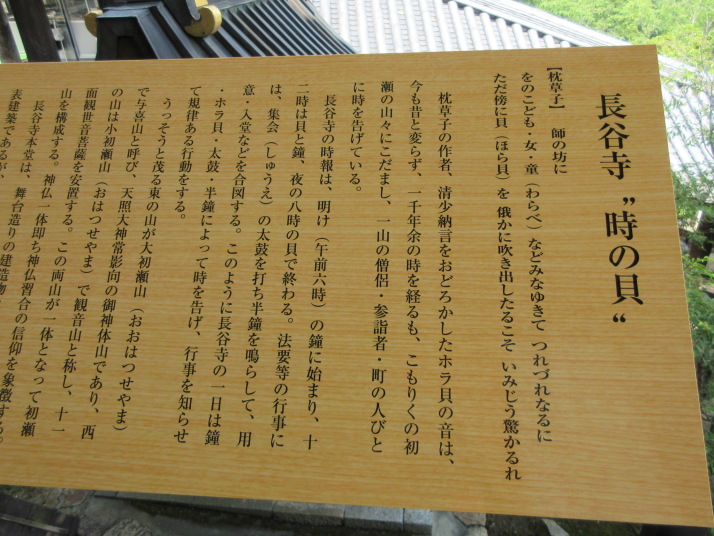 長谷寺 〝時の貝〟
【枕草子】 師の坊に
をのこども・女・童（わらべ）などみなゆきて つれづれなるに
ただ傍に貝（ほら貝）を 俄かに吹き出したるこそ いみじう驚かるれ
枕草子の作者、清少納言をおどろかしたホラ貝の音は、
今も昔と変らず、一千年余の時を経るも、こもりくの初
瀬の山々にこだまし、一山の僧侶・参詣者・町の人びと
に時を告げている。
長谷寺の時報は、明け（午前六時）の鐘に始まり、十
二時は貝と鐘、夜の八時の貝で終わる。法要等の行事に
は、集会（しゅうえ）の太鼓を打ち半鐘を鳴らして、用
意・入堂などを合図する。このように長谷寺の一日は鐘
・ホラ貝・太鼓・半鐘によって時を告げ、行事を知らせ
て規律ある行動をする。
うっそうと茂る東の山が大初瀬山（おおはつせやま）
で与喜山と呼び、天照大神常影向の御神体山であり、西
の山は小初瀬山（おはつせやま）で観音山と称し、十一
面観世音菩薩を安置する。この両山が一体となって初瀬
山を構成する。神仏一体即ち神仏習合の信仰を象徴する。
長谷寺本堂は、舞台造りの建造物
表建築であるが、